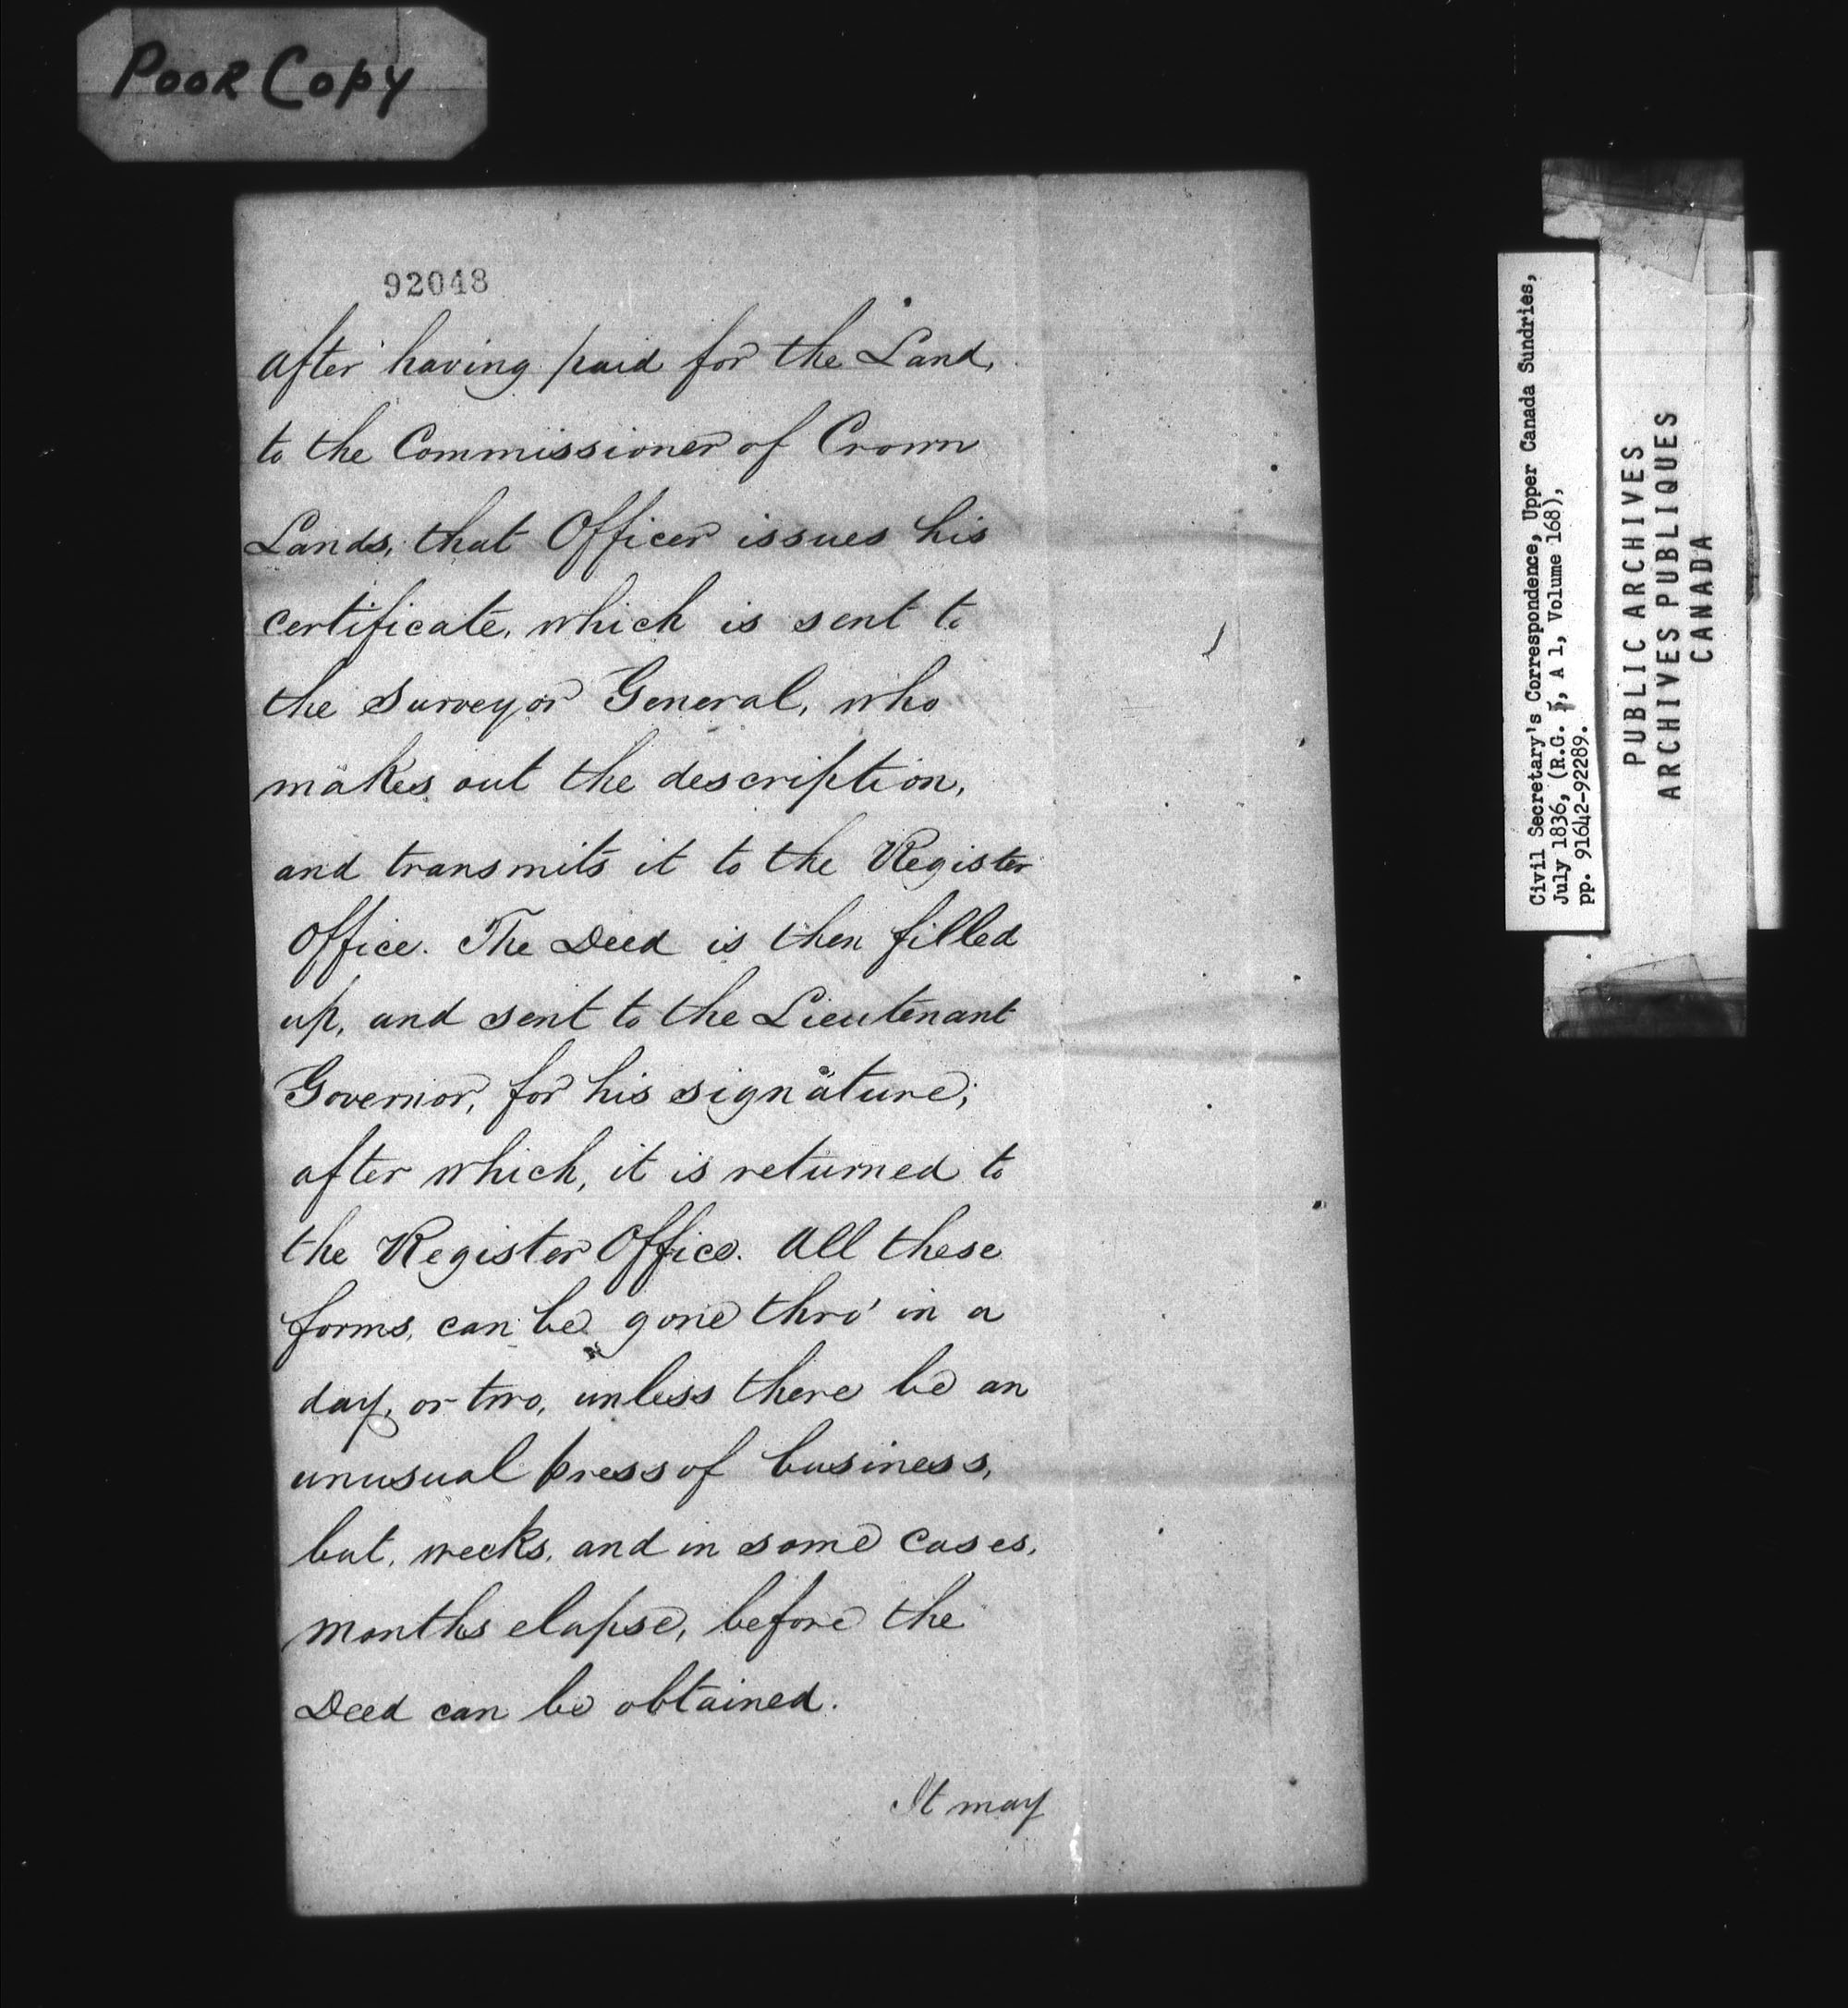 POOR COPY
92048
after having paid for the Land,
to the Commissioner of Crown
Lands, that Officer issues his
certificate, which is sent to
the Surveyor General, who
makes out the description,
and transmits it to the Register
Office. The Deed is then filled
up, and sent to the Lieutenant
Governor, for his signature;
after which, it is returned to
the Register Office. All these
forms, can be gone thro' in a
day, or two, unless there be an
unusual press of business,
but, weeks, and in some cases,
months elapse, before the
Deed can be obtained.
It may
Civil Secretary's Correspondence, Upper Canada Sundries,
July 1836, (R.G. 5, A 1, Volume 168),
pp. 91642-92289.
PUBLIC ARCHIVES
ARCHIVES PUBLIQUES
CANADA